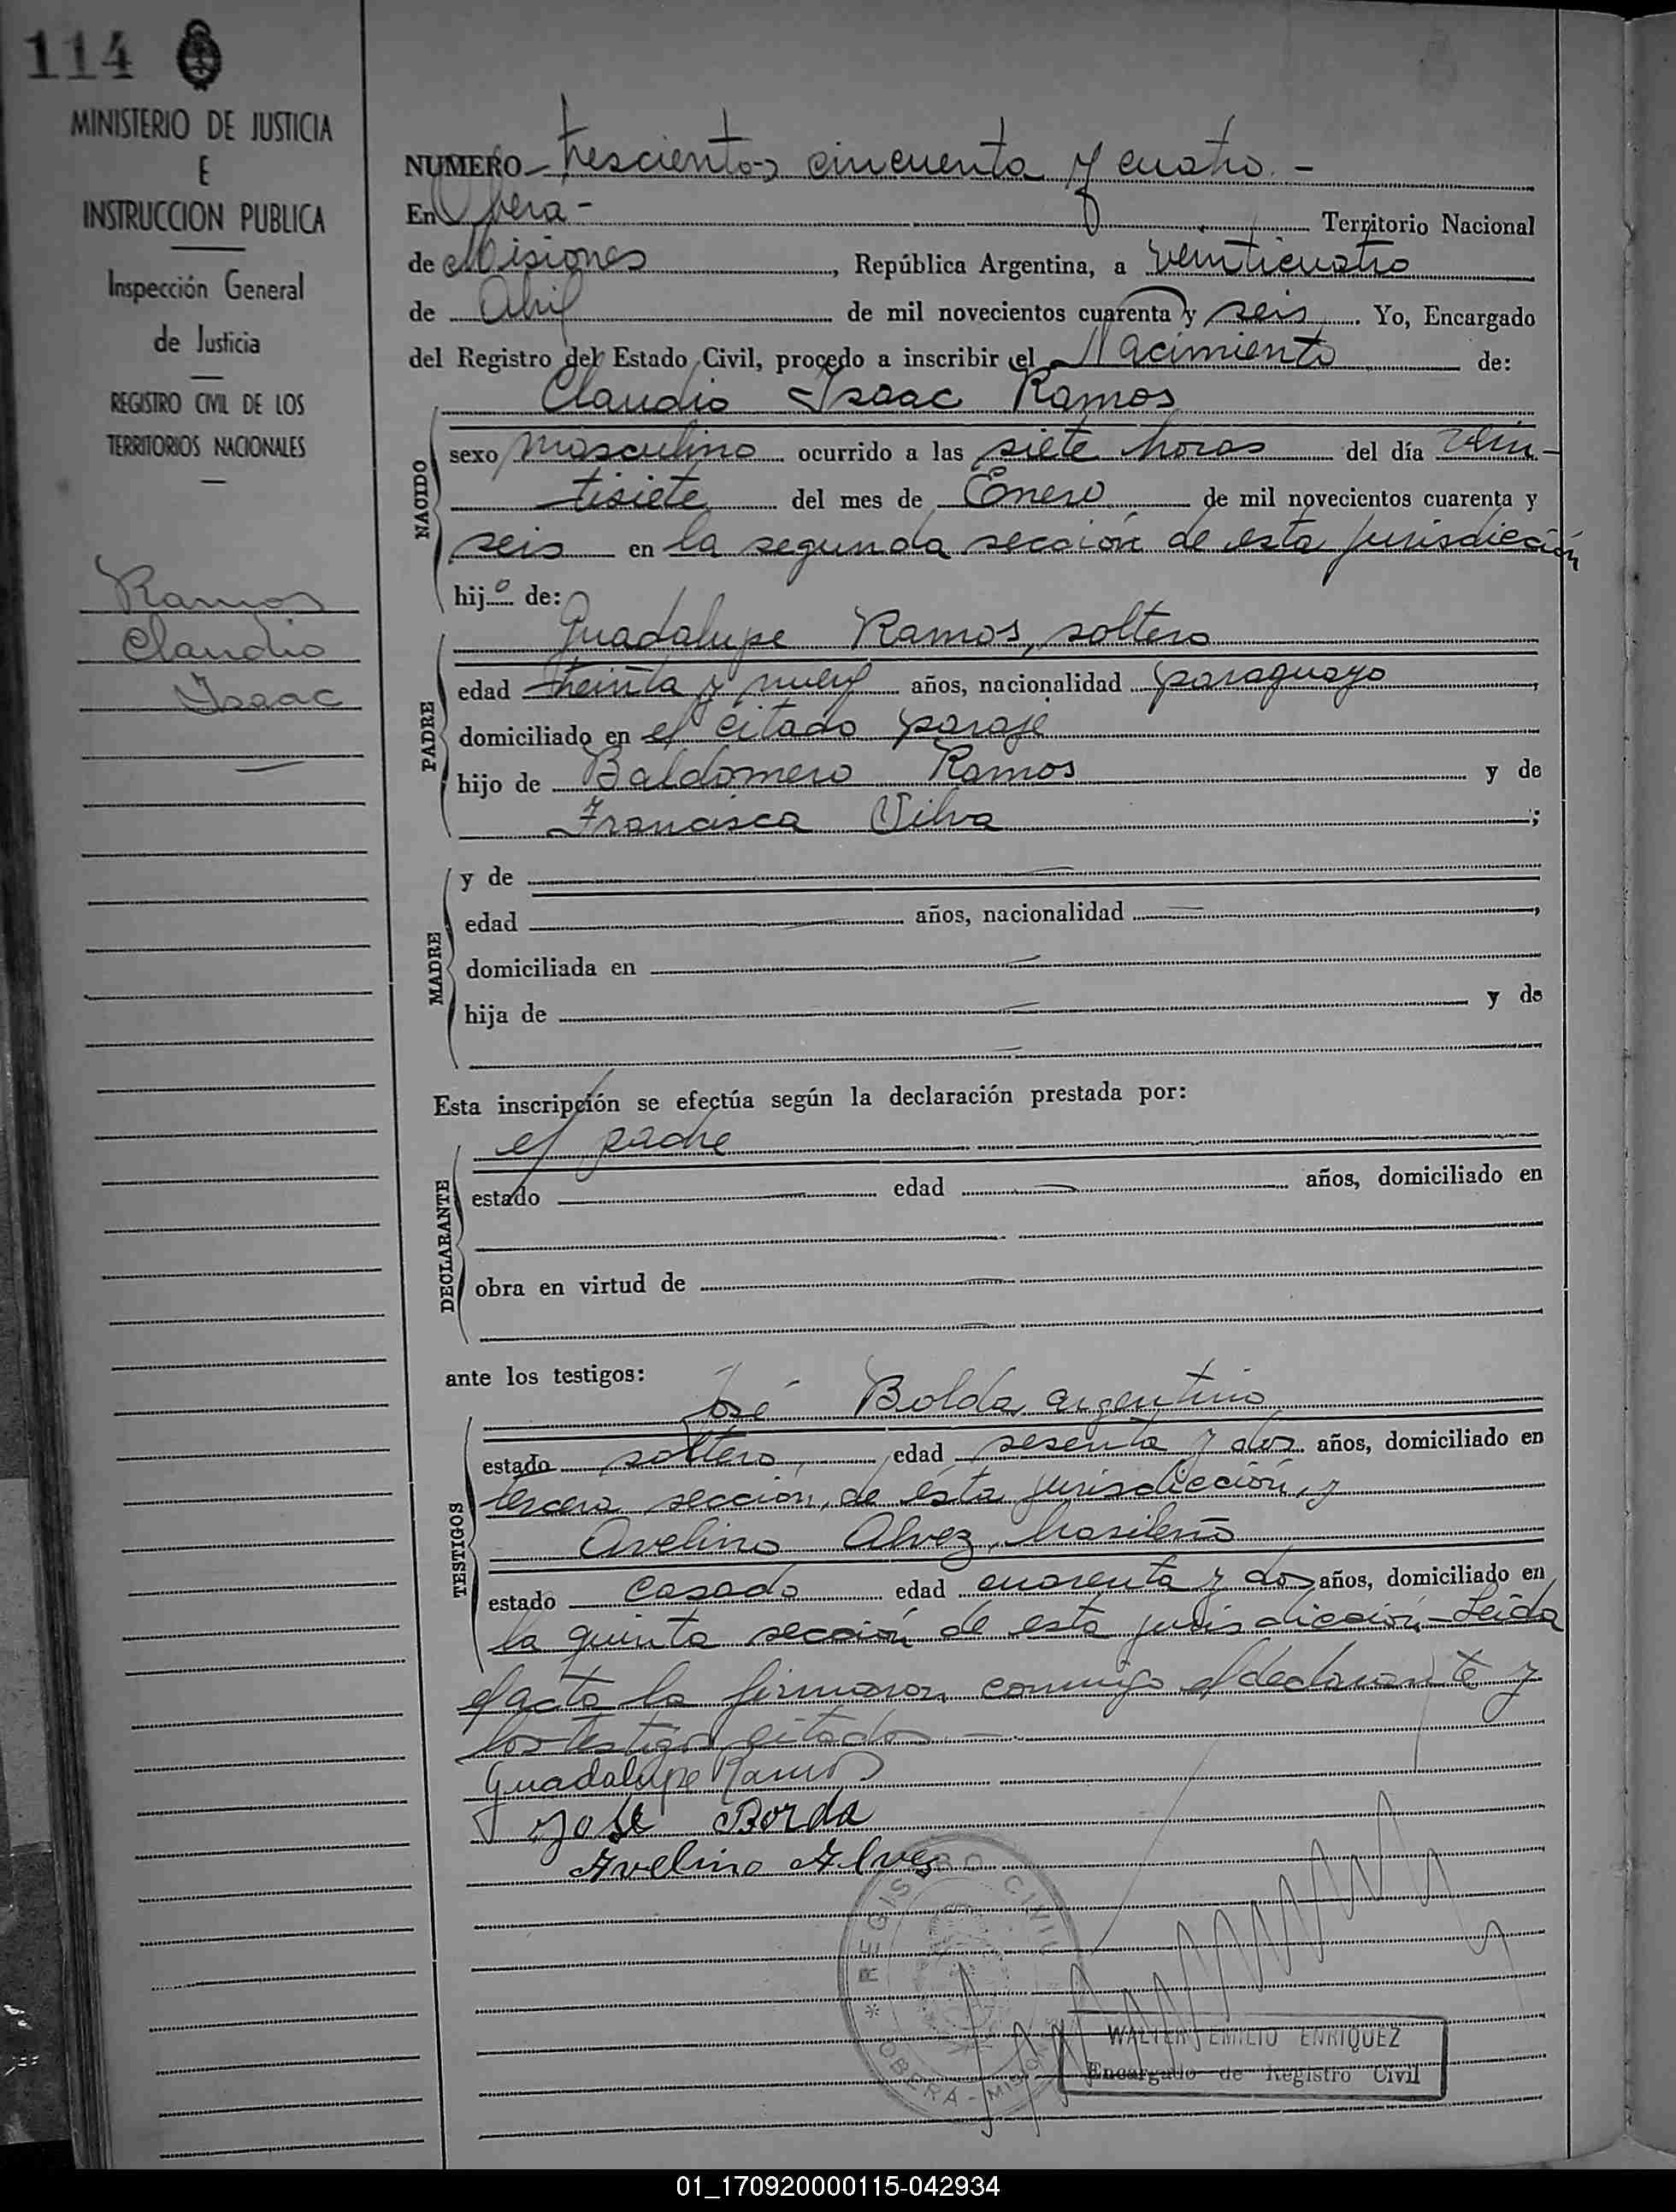 114
MINISTERIO DE JUSTICIA
E
INSTRUCCION PUBLICA
Inspección General
de Justicia
REGISTRO CIVIL DE LOS
TERRITORIOS NACIONALES
Ramos
Claudio
Isaac
NUMERO trescientos cincuenta y cuatro.-
En Obera- Territorio Nacional
de Misiones, República Argentina, a veinticuatro
de Abril de mil novecientos cuarenta y seis. Yo, Encargado
del Registro del Estado Civil, procedo a inscribir el Nacimiento de:
Claudio Isaac Ramos
NACIDO
sexo masculino ocurrido a las siete horas del día vein-
tisiete del mes de Enero de mil novecientos cuarenta y
seis en la segunda sección de esta jurisdicción
hijo de:
PADRE
Guadalupe Ramos, soltero
edad treinta y nueve años, nacionalidad paraguayo,
domiciliado en el citado paraje
hijo de Baldomero Ramos y de
Francisca Silva;
MADRE
y de
edad años, nacionalidad,
domiciliada en
hija de y de
Esta inscripción se efectúa según la declaración prestada por:
DECLARANTE
el padre
estado edad años, domiciliado en
obra en virtud de
ante los testigos:
TESTIGOS
José Bolda, argentino
estado soltero, edad sesenta y dos años, domiciliado en
tercera sección, de ésta jurisdicción, y
Avelino Alvez, brasileño
estado casado edad cuarenta y dos años, domiciliado en
la quinta sección de esta jurisdicción-Leida
el acta la firmaron conmigo el declarante y
los testigos citados-
Guadalupe Ramos
José Borda
Avelino Alves
REGISTRO CIVIL
* OBERA - MISIONES
WALTER EMILIO ENRIQUEZ
Encargado de Registro Civil
01_170920000115-042934